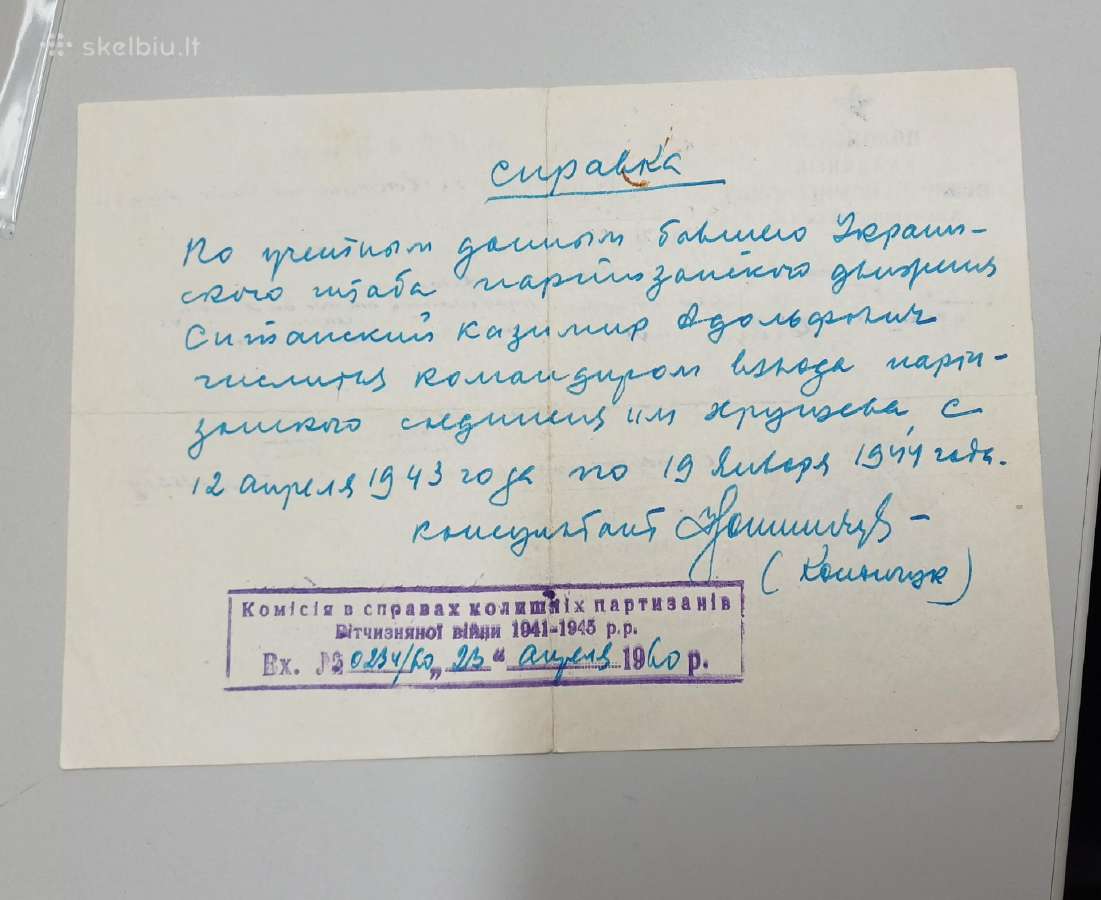 skelbiu.lt
справка
По учетным данным бывшего Украин-
ского штаба партизанского движения
Ситанский Казимир Адольфович
числится командиром взвода парти-
занского соединения им Хрущева, с
12 апреля 1943 года по 19 Января 1944 года.
консультант
Комісія в справах колишніх партизанів
Вітчизняної війни 1941-1945 р.р.
Вх. № 0234/60 „23“ апреля 1960 р.